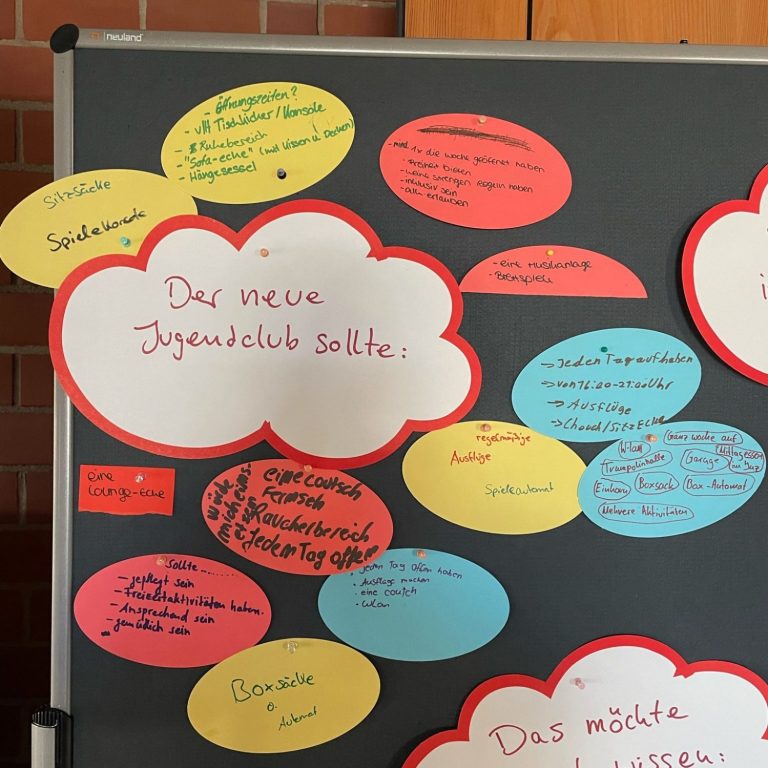 neuland
Öffnungszeiten?
- vllt Tischkicker/Konsole
- Ruhebereich
- "Sofa-ecke" (mit Kissen u. Decken)
- Hängesessel
Sitzsäcke
Spielekonsole
- mind. 1x die woche geöffnet haben
- Freiheit bieten
- keine strengen Regeln haben
- inklusiv sein
- alk erlauben
- eine Musikanlage
- Brettspiele
Der neue
Jugendclub sollte:
-> Jeden Tag aufhaben
-> von 16:00-21:00 Uhr
-> Ausflüge
-> Chouch/SitzEcke
regelmäßige
Ausflüge
Spieleautomat
W-lan
Ganz woche auf
Trampolinhalle
Garage
Mittagessen
im Juz
Einhorn
Boxsack
Box-Automat
Mehrere Aktivitäten
eine
Lounge-Ecke
würde
mich
eine coutsch
Fernseh
Raucherbereich
Jeden Tag offen
Sollte ......
- gepflegt sein
- Freizeitaktivitäten haben.
- Ansprechend sein
- gemütlich sein
Jeden Tag offen haben
Ausflüge machen
eine coutch
WLan
Boxsäcke
o.
Automat
Das möchte